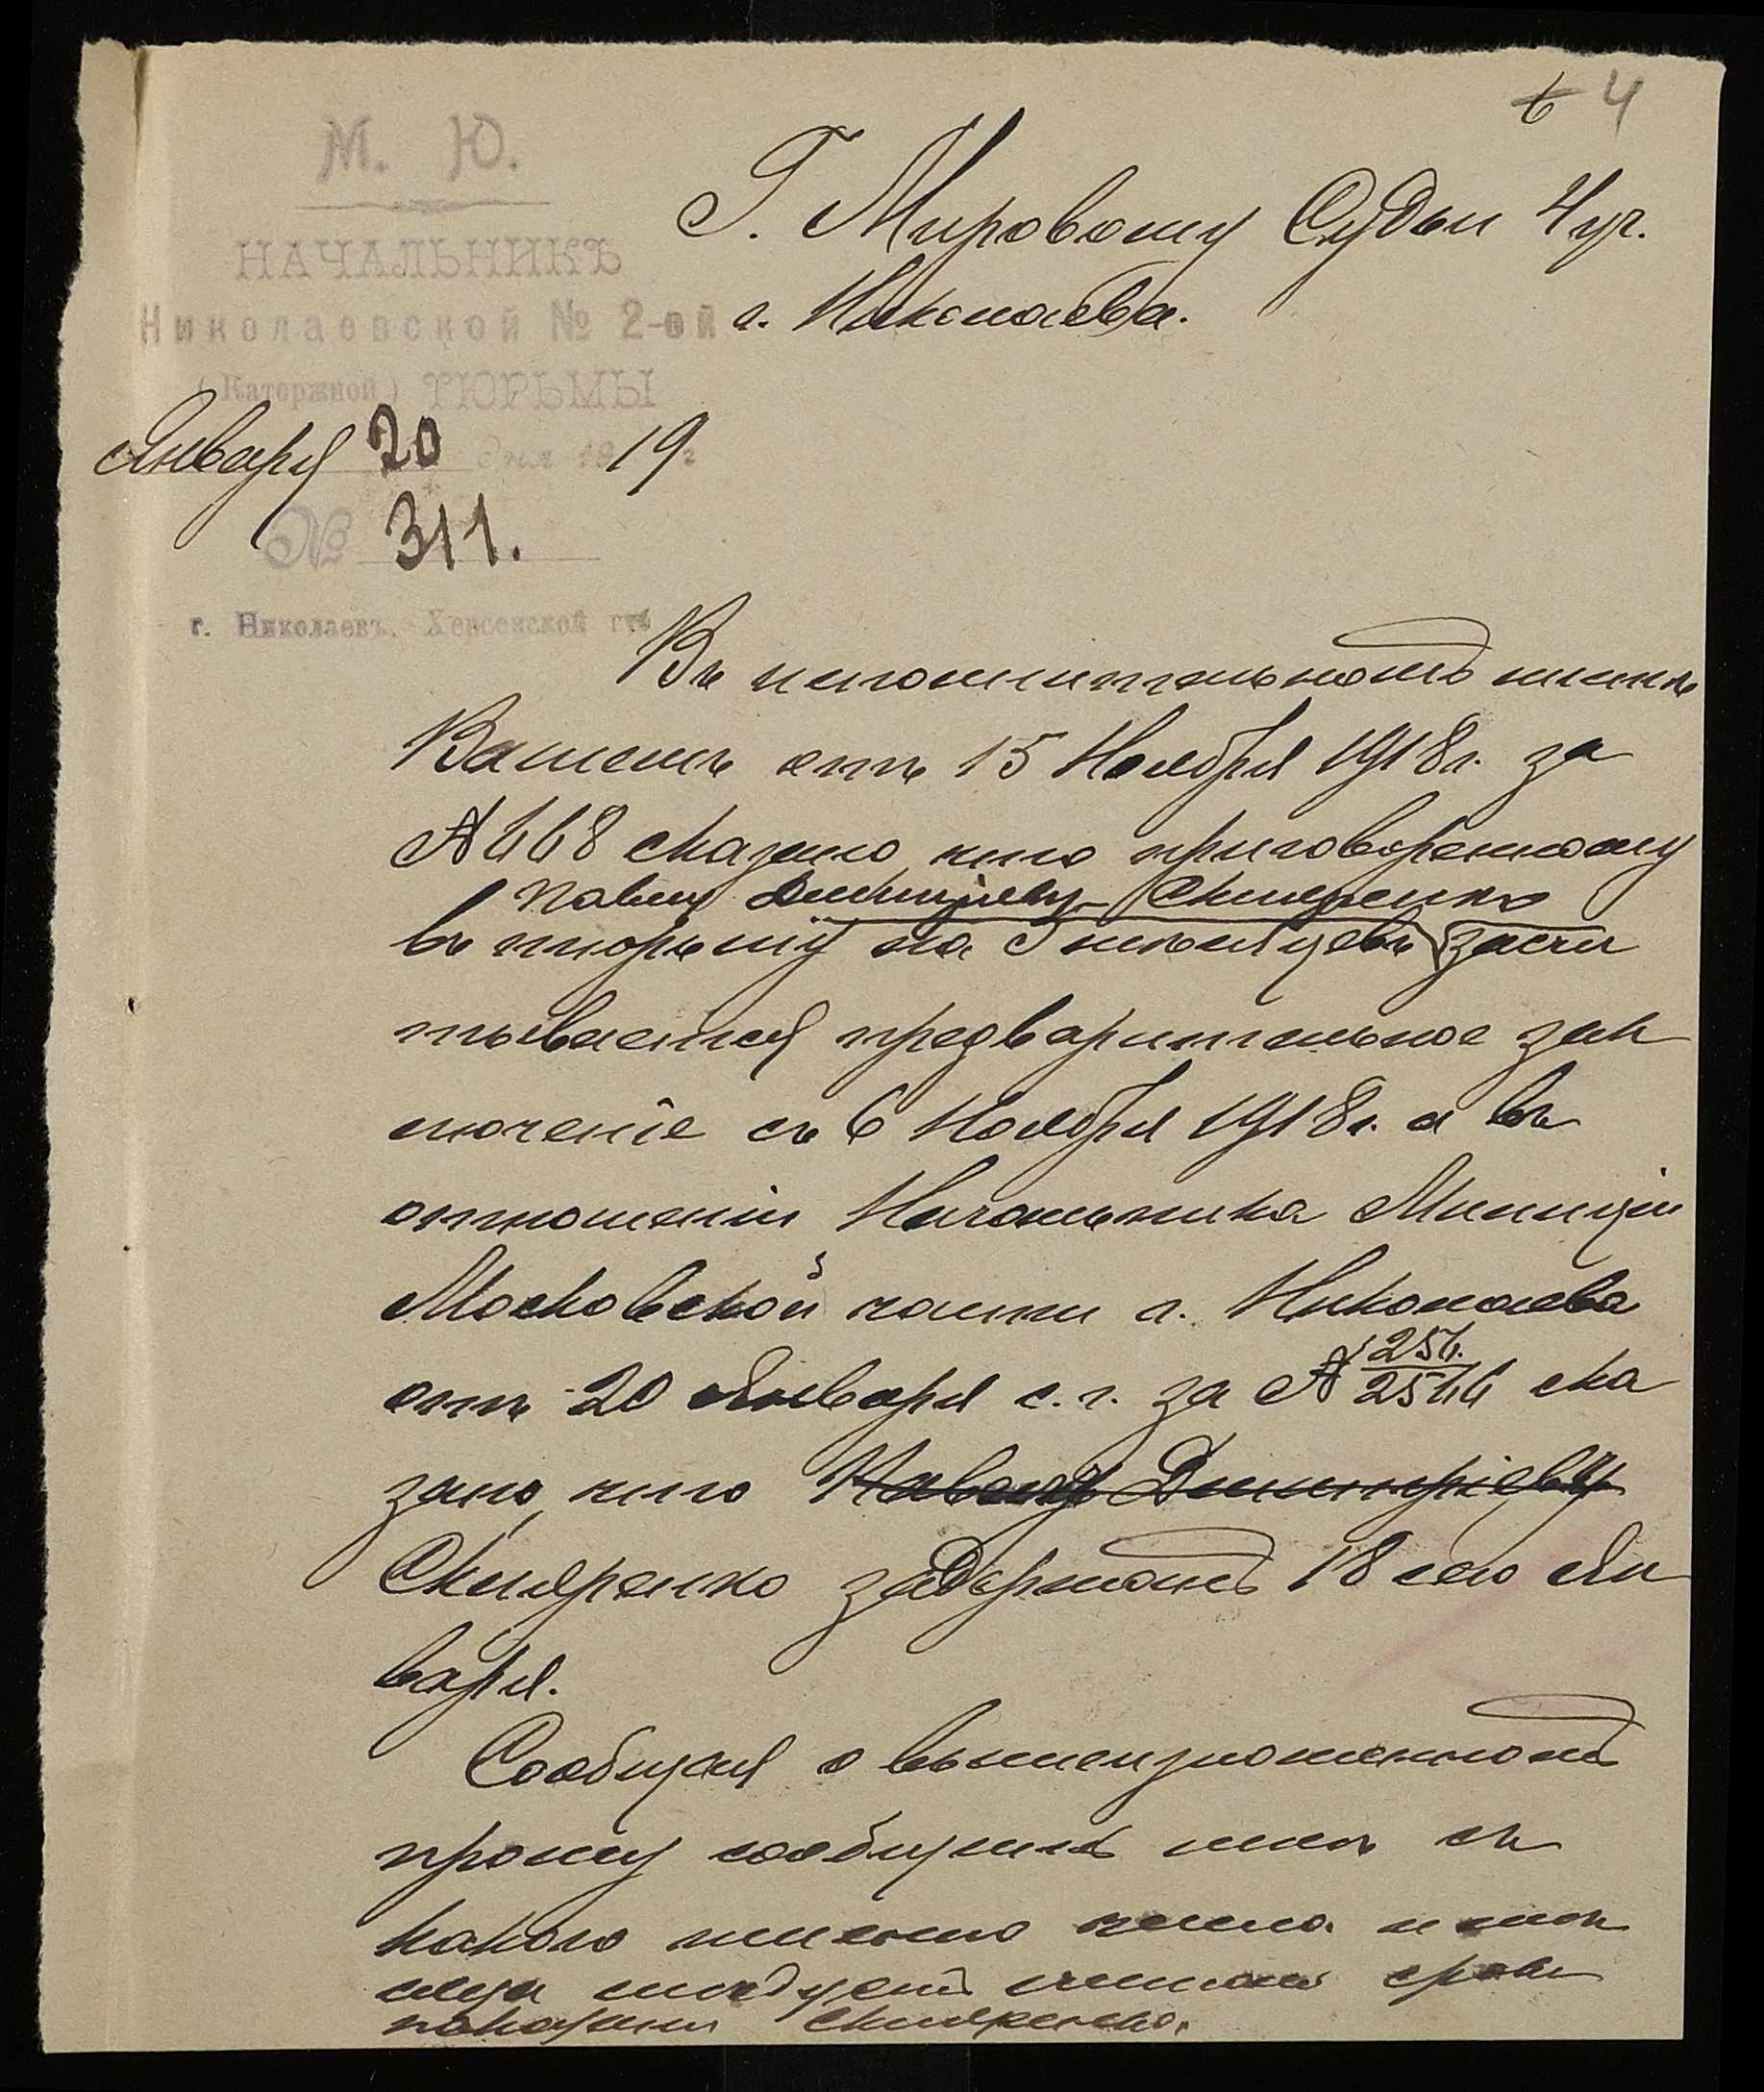 6 4
М. Ю.
НАЧАЛЬНИКЪ
Николаевской № 2-ой
(Каторжной) ТЮРЬМЫ
Января 20 дня 19 19 г
№ 311.
г. Николаевъ, Херсонской губ
Г. Мировому Судьи 4 уч.
г. Николаева.
Въ исполнительномъ листѣ
Вашемъ отъ 15 Ноября 1918 г. за
№ 468 сказано, что приговоренному
Павлу Дмитріеву Скляренко
въ тюрьму на 3 мѣсяцевъ засчи
тывается предварительное зак
лючение съ 6 Ноября 1918 г. а въ
отношеніи Начальника Милиціи
Московской части г. Николаева
отъ 20 Января с. г. за № 254/2544 ска
зано, что Павелъ Дмитріевъ
Скляренко задержанъ 18 сего Ян
варя.
Сообщая о вышеизложенномъ
прошу сообщить мнѣ съ
какого именно числа и мѣ
сяца слѣдуетъ считать срокъ
наказания Скляренко.